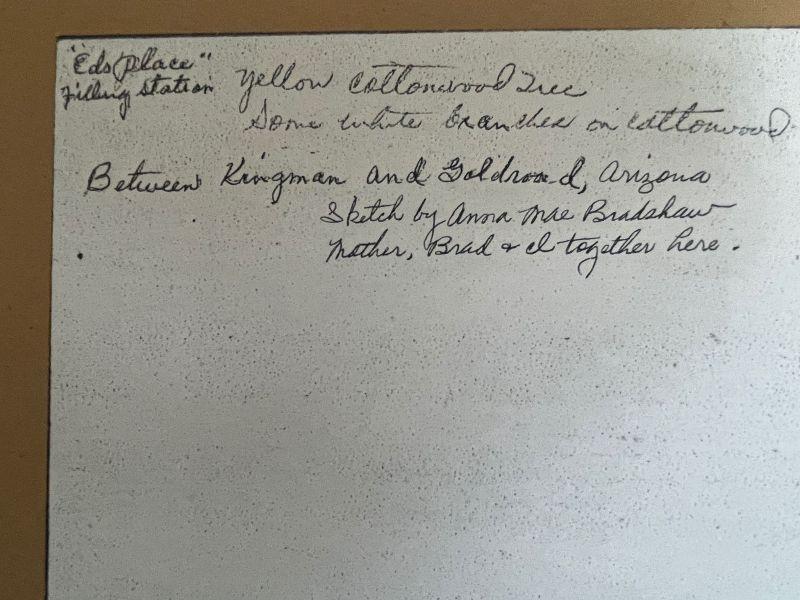 "Eds Place"
Filling station
Yellow Cottonwood Tree
Some white branches on cottonwood
Between Kingman and Goldroad, Arizona
Sketch by Anna Mae Bradshaw
Mother, Brad & I together here.